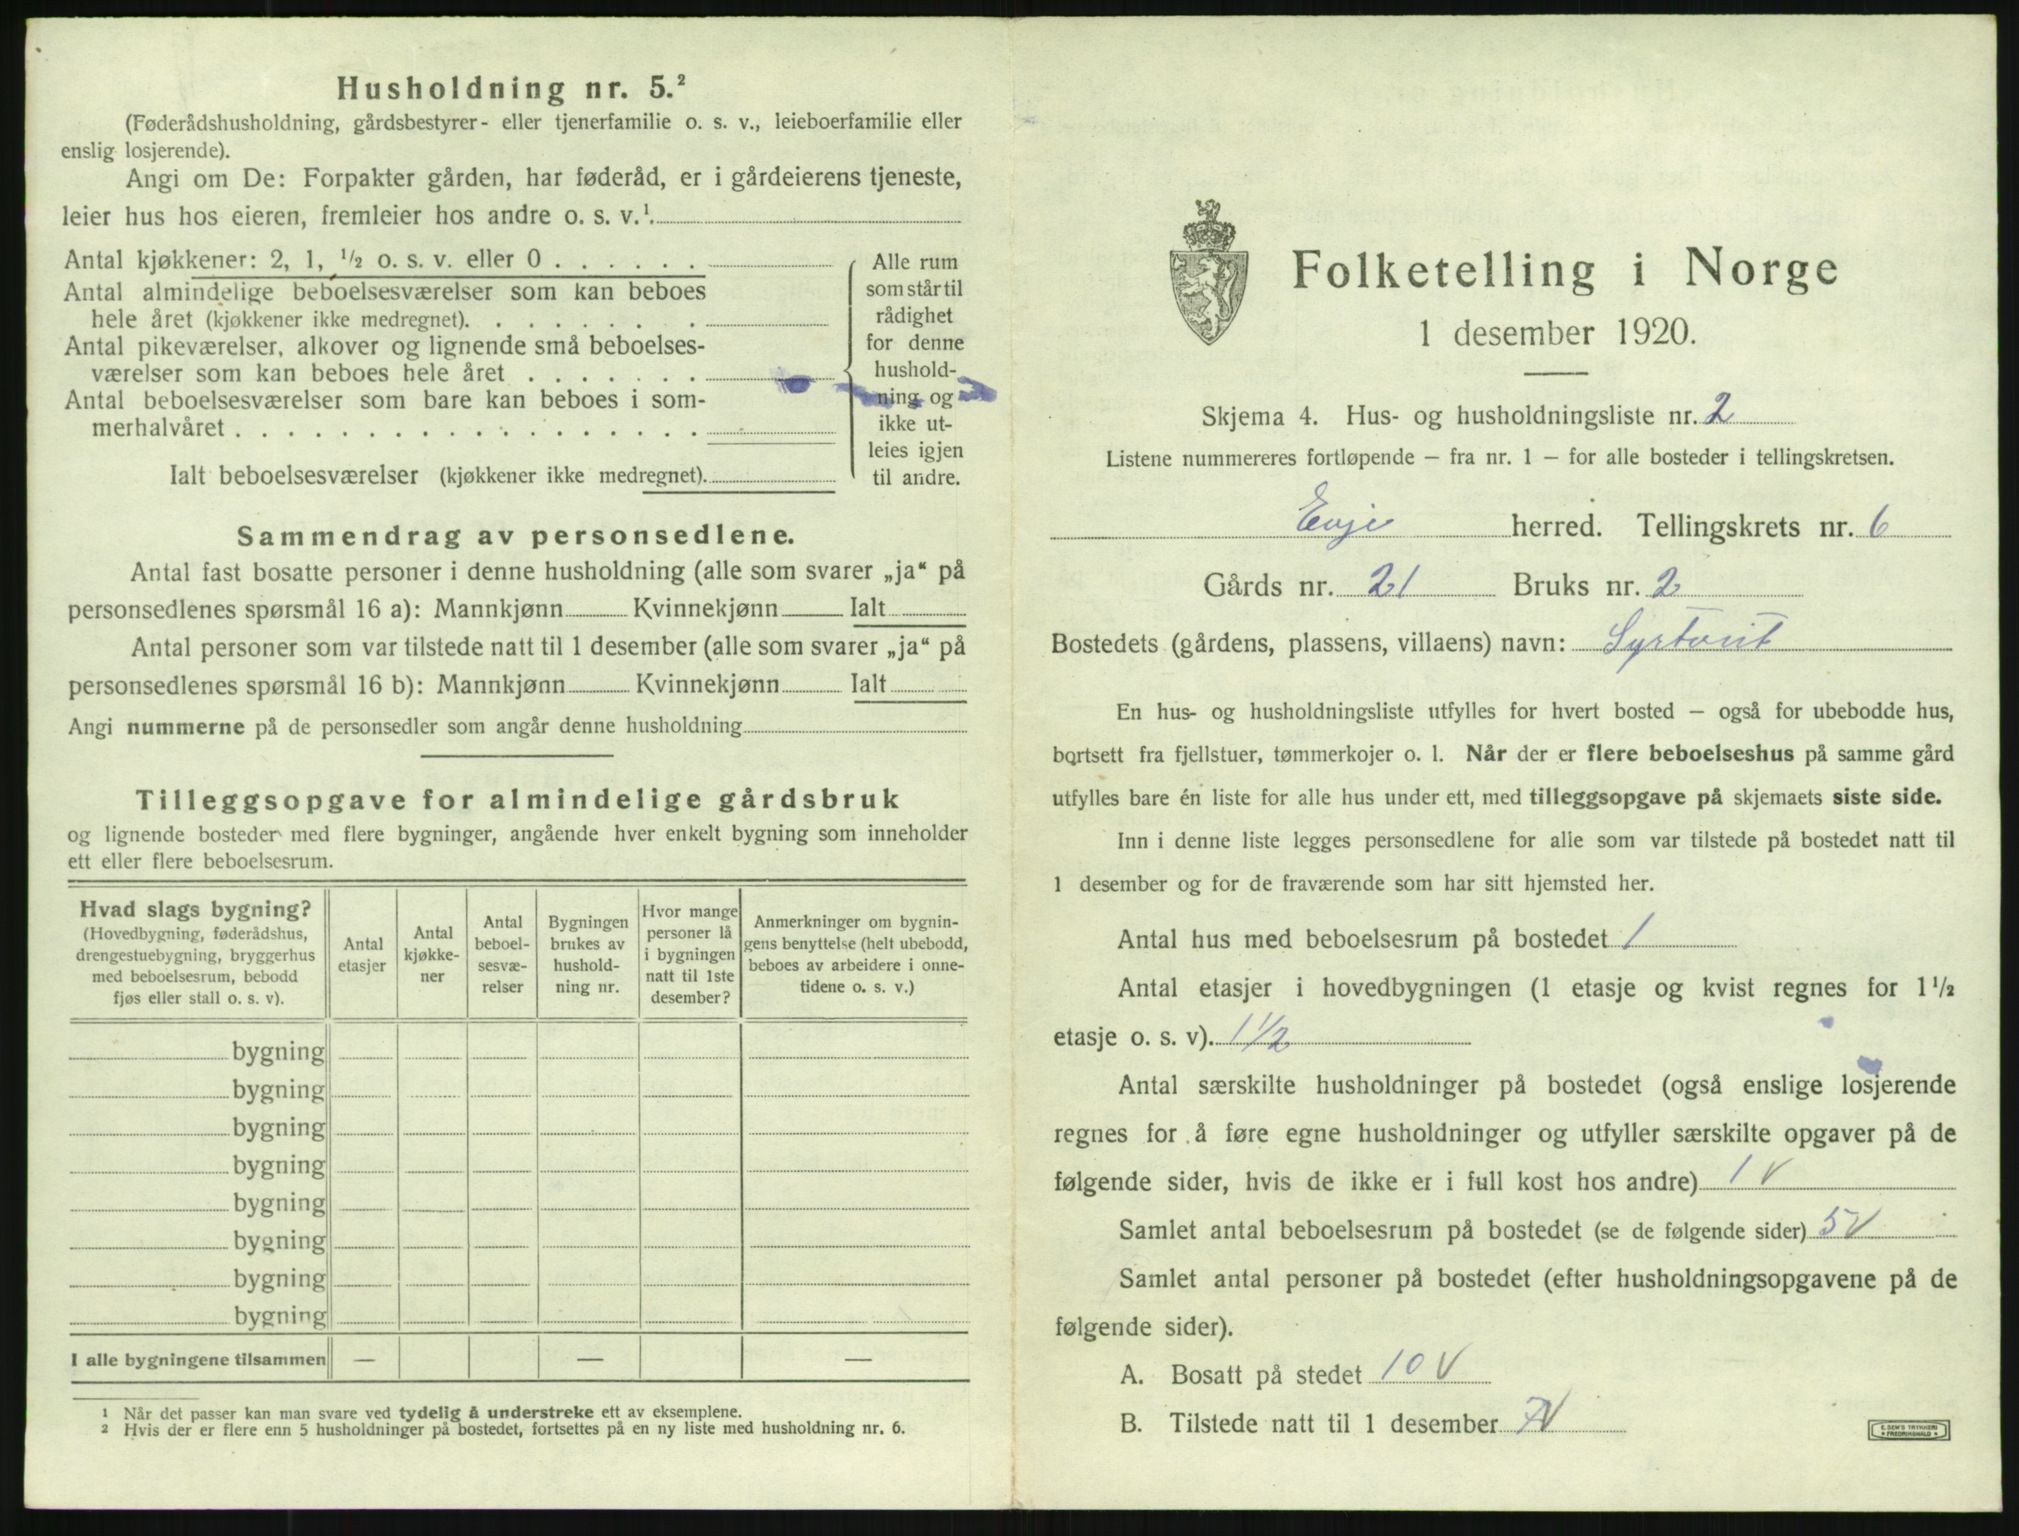 Husholdning nr. 5.²
(Føderådshusholdning, gårdsbestyrer- eller tjenerfamilie o. s. v., leieboerfamilie eller
enslig losjerende).
Angi om De: Forpakter gården, har føderåd, er i gårdeierens tjeneste,
leier hus hos eieren, fremleier hos andre o. s. v.¹
Antal kjøkkener: 2, 1, ½ o. s. v. eller 0 . . . . . .
Antal almindelige beboelsesværelser som kan beboes
hele året (kjøkkener ikke medregnet). . . . . . . . .
Antal pikeværelser, alkover og lignende små beboelses-
værelser som kan beboes hele året . . . . . . .
Antal beboelsesværelser som bare kan beboes i som-
merhalvåret . . . . . . . . . . . . . . . . . .
Ialt beboelsesværelser (kjøkkener ikke medregnet).
Alle rum
som står til
rådighet
for denne
hushold-
ning og
ikke ut-
leies igjen
til andre.
Sammendrag av personsedlene.
Antal fast bosatte personer i denne husholdning (alle som svarer „ja“ på
personsedlenes spørsmål 16 a): Mannkjønn Kvinnekjønn Ialt
Antal personer som var tilstede natt til 1 desember (alle som svarer „ja“ på
personsedlenes spørsmål 16 b): Mannkjønn Kvinnekjønn Ialt
Angi nummerne på de personsedler som angår denne husholdning
Tilleggsopgave for almindelige gårdsbruk
og lignende bosteder med flere bygninger, angående hver enkelt bygning som inneholder
ett eller flere beboelsesrum.
Hvad slags bygning?
(Hovedbygning, føderådshus,
drengestuebygning, bryggerhus
med beboelsesrum, bebodd
fjøs eller stall o. s. v).
Antal
etasjer
Antal
kjøkke-
ner
Antal
beboel-
sesvæ-
relser
Bygningen
brukes av
hushold-
ning nr.
Hvor mange
personer lå
i bygningen
natt til 1ste
desember?
Anmerkninger om bygnin-
gens benyttelse (helt ubebodd,
beboes av arbeidere i onne-
tidene o. s. v.)
bygning
bygning
bygning
bygning
bygning
bygning
bygning
bygning
I alle bygningene tilsammen — — —
¹ Når det passer kan man svare ved tydelig å understreke ett av eksemplene.
² Hvis der er flere enn 5 husholdninger på bostedet, fortsettes på en ny liste med husholdning nr. 6.
Folketelling i Norge
1 desember 1920.
Skjema 4. Hus- og husholdningsliste nr. 2
Listene nummereres fortløpende – fra nr. 1 – for alle bosteder i tellingskretsen.
Evje herred. Tellingskrets nr. 6
Gårds nr. 21 Bruks nr. 2
Bostedets (gårdens, plassens, villaens) navn: Syrtveit
En hus- og husholdningsliste utfylles for hvert bosted – også for ubebodde hus,
bortsett fra fjellstuer, tømmerkojer o. l. Når der er flere beboelseshus på samme gård
utfylles bare én liste for alle hus under ett, med tilleggsopgave på skjemaets siste side.
Inn i denne liste legges personsedlene for alle som var tilstede på bostedet natt til
1 desember og for de fraværende som har sitt hjemsted her.
Antal hus med beboelsesrum på bostedet 1
Antal etasjer i hovedbygningen (1 etasje og kvist regnes for 1½
etasje o. s. v). 1½
Antal særskilte husholdninger på bostedet (også enslige losjerende
regnes for å føre egne husholdninger og utfyller særskilte opgaver på de
følgende sider, hvis de ikke er i full kost hos andre) 1 V
Samlet antal beboelsesrum på bostedet (se de følgende sider) 5 V
Samlet antal personer på bostedet (efter husholdningsopgavene på de
følgende sider).
A. Bosatt på stedet 10 V
B. Tilstede natt til 1 desember 7 V
E. SEM'S TRYKKERI
* FREDRIKSHALD *